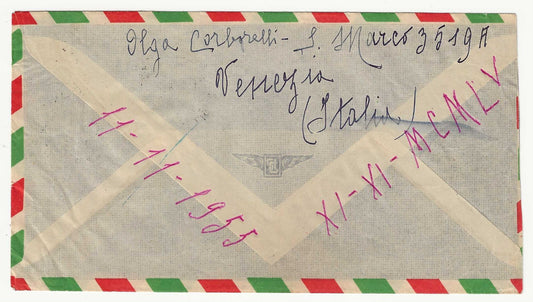 Olga Corborelli - S. Marco 3519A
Venezia
(Italia)
11-11-1955
XI-XI-MCMLV